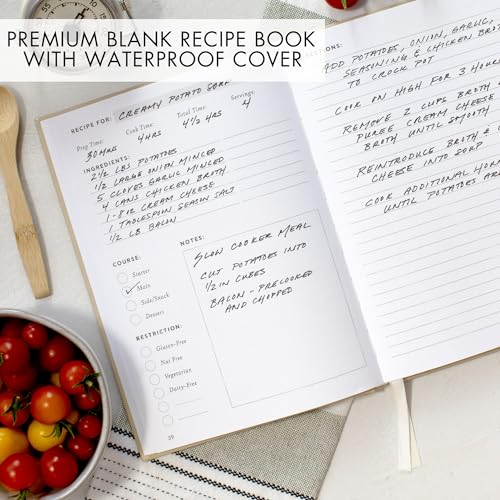 PREMIUM BLANK RECIPE BOOK
WITH WATERPROOF COVER
RECIPE FOR: CREAMY POTATO SOUP
Prep Time: Cook Time: Total Time: Servings:
30 MRS 4 HRS 4 1/2 HRS 4
INGREDIENTS:
2 1/2 LBS POTATOES
1/2 LARGE ONION MINCED
5 CLOVES GARLIC MINCED
4 CANS CHICKEN BROTH
1-8 OZ CREAM CHEESE
1 TABLESPOON SEASON SALT
1/2 LB BACON
COURSE:
Starter
Main
Side/Snack
Dessert
RESTRICTION:
Gluten-Free
Nut Free
Vegetarian
Dairy-Free
NOTES:
SLOW COOKER MEAL
CUT POTATOES INTO
1/2 IN CUBES
BACON - PRECOOKED
AND CHOPPED
TIONS:
ADD POTATOES, ONION, GARLIC,
SEASONING & CHICKEN BROTH
TO CROCK POT
COOK ON HIGH FOR 3 HOURS
REMOVE 2 CUPS BROTH &
PUREE CREAM CHEESE
BROTH UNTIL SMOOTH
REINTRODUCE BROTH &
CHEESE INTO SOUP
COOK ADDITIONAL HO
UNTIL POTATOES AR